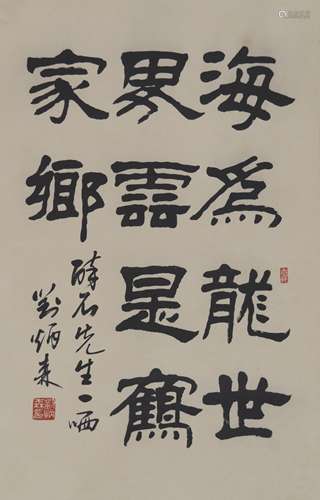 海為龍世
界雲是鶴
家鄉
醉石先生一哂
劉炳森